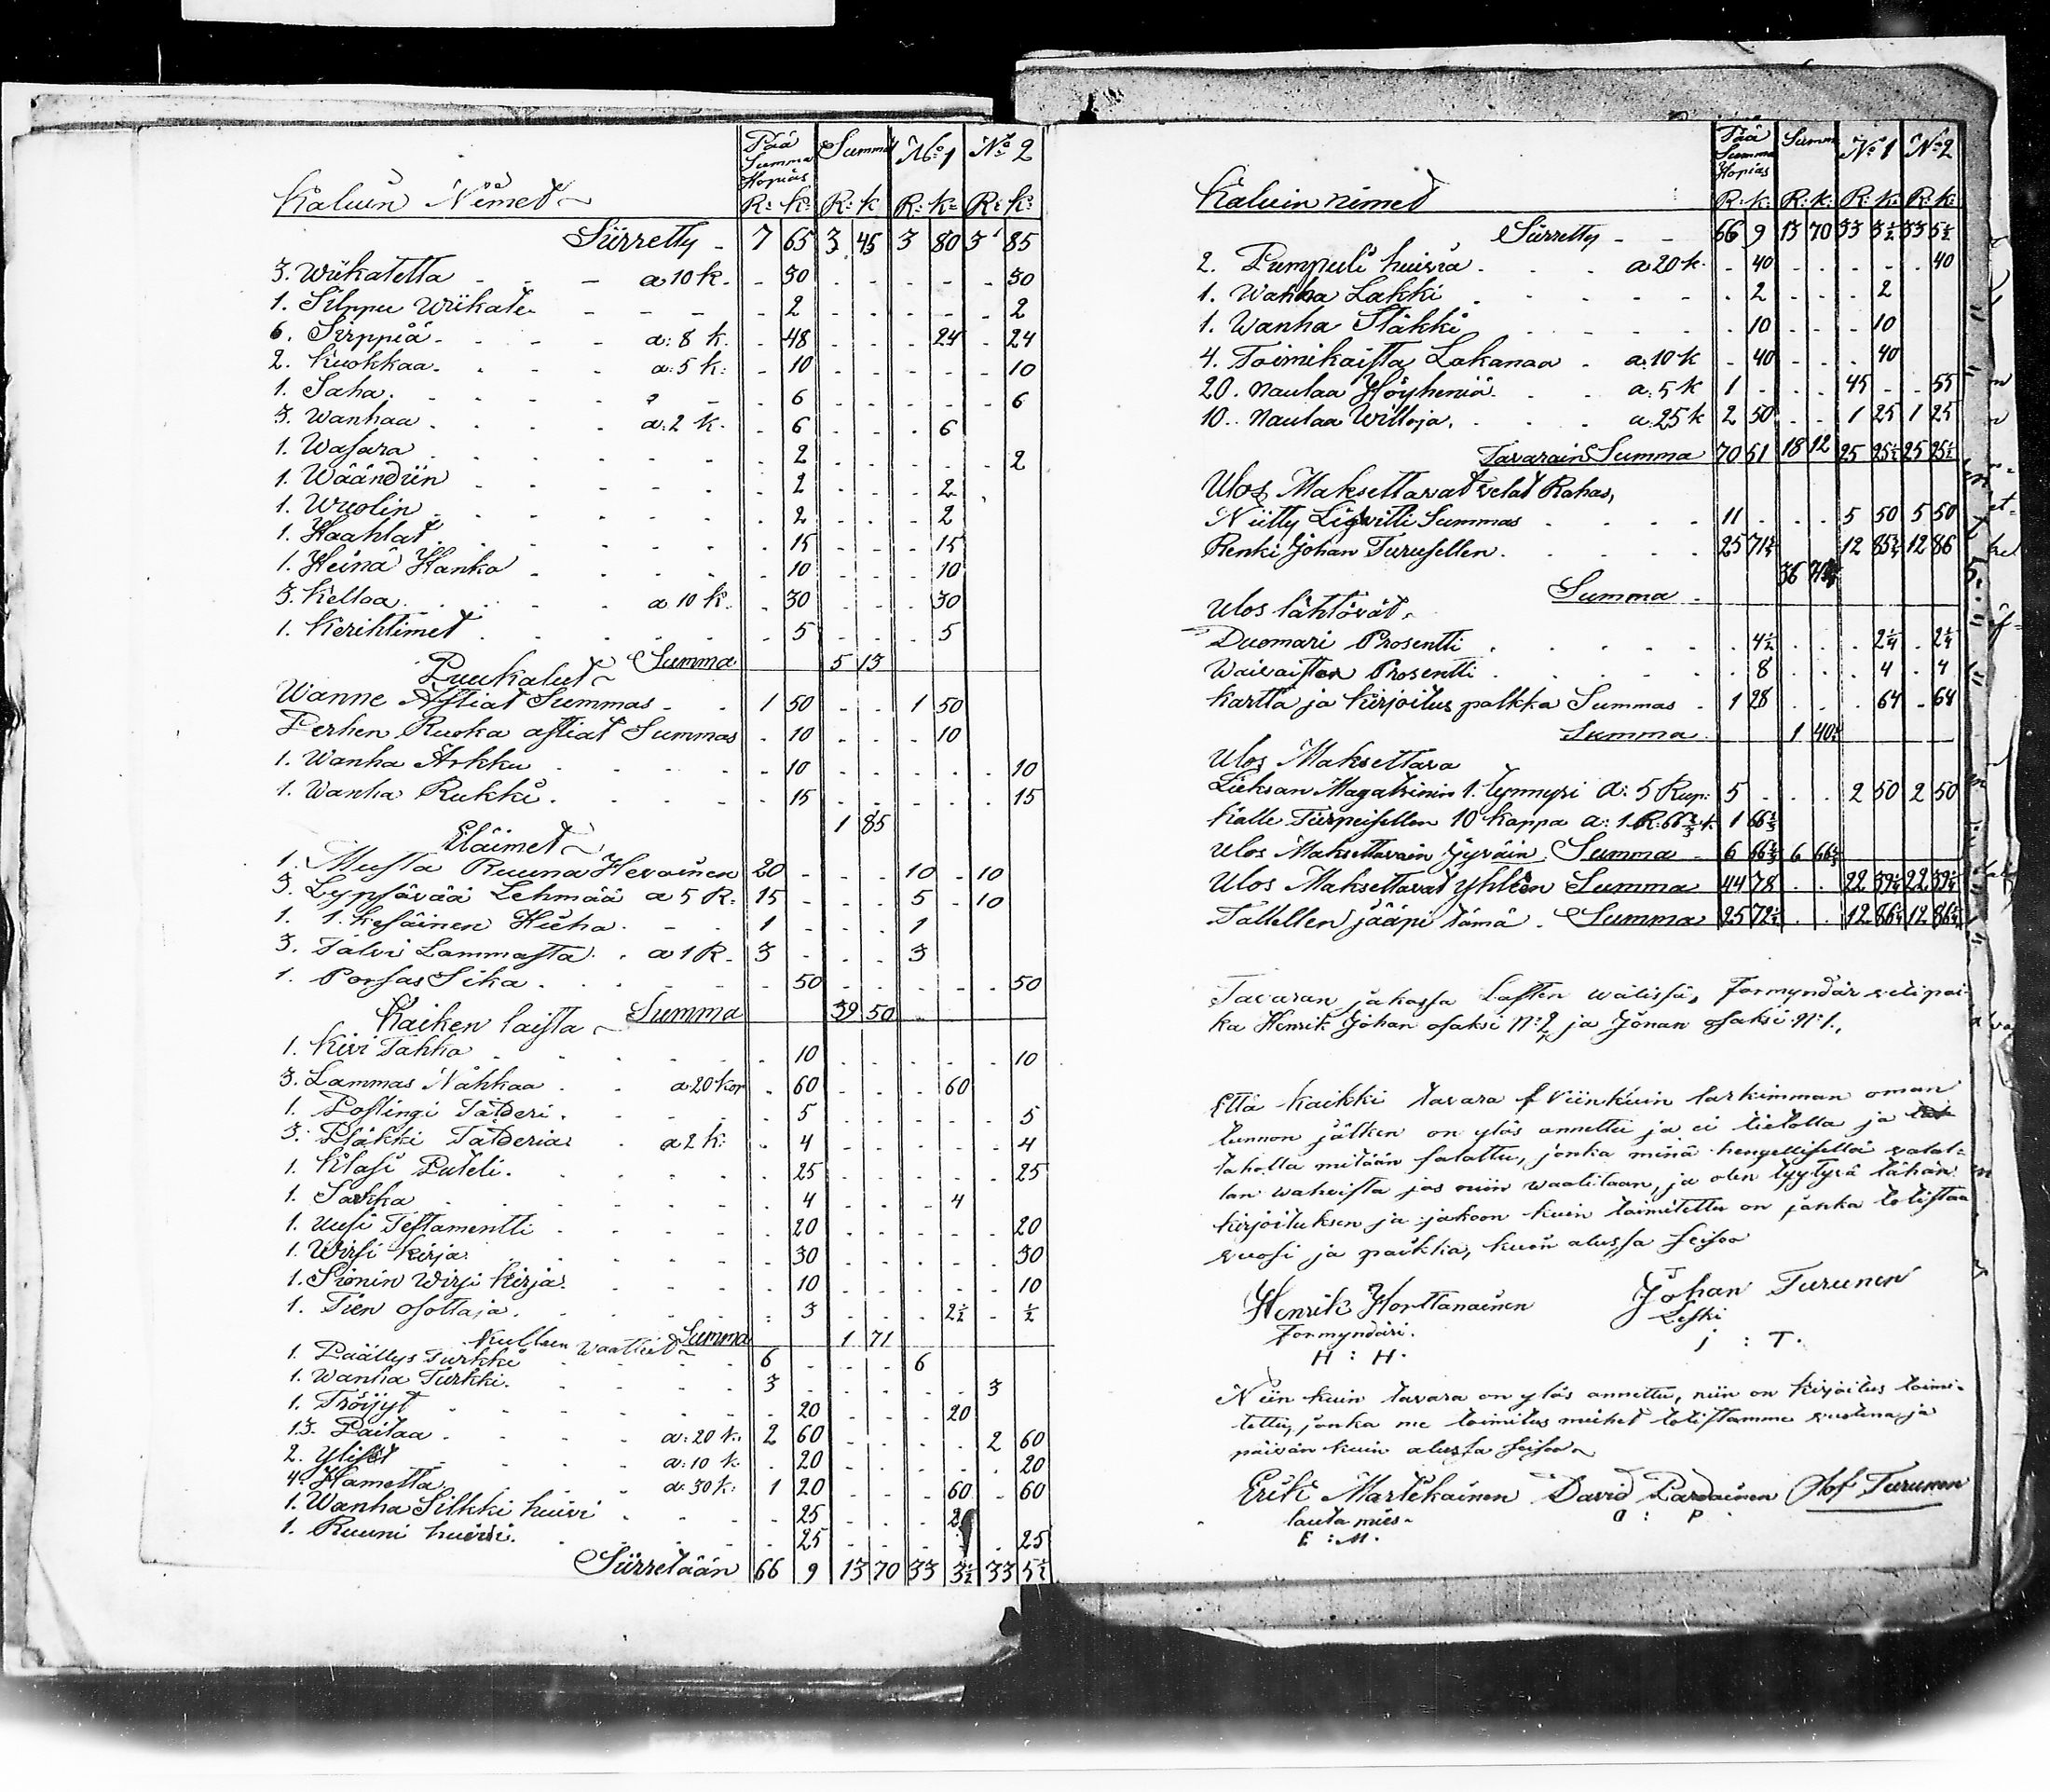 Pää Summa Hopias Summa No 1 No 2
Kaluin Nimet R: k: R: k R: k: R: k:
Siirretty - 7 65 3 45 3 80 3 85
3. Wiikatetta - - - a 10 k. - 30 30
1. Silppu Wiikate - - - - 2 2
6. Sirppiä - - - a: 8 k. 48 24 24
2. Kuokkaa. - - a: 5 k: 10 10
1. Saha. 6 6
3. Wanhaa a: 2 k. 6 6
1. Wasara 2 2
1. Wäändiin 2 2
1. Wuolin 2 2
1. Haahlat 15 15
1. Heinä Hanko 10 10
3. Kelloa. a 10 k. 30 30
1. Kerihtimet 5 5
Summa 5 13
Puukalut
Wanne Astiat Summas - 1 50 1 50
Perhen Ruoka astiat Summas 10 10
1. Wanha Arkku 10 10
1. Wanha Rukki. 15 15
1 85
Eläimet
1. Musta Ruuna Hevoinen 20 10 10
3. Lypsävää Lehmää a 5 R: 15 5 10
1. 1. Kesäinen Hieho. 1 1
3. Talvi Lammasta. a 1 R. 3 3
1. Porsas Sika. 50 50
Summa 39 50
Kaiken laista
1. Kivi Tahko 10 10
3. Lammas Nahkaa a 20 kop 60 60
1. Poslingi Tätderi. 5 5
3. Pläkki Tätderia a 2 k: 4 4
1. Klasi Puteli. 25 25
1. Sarkka 4 4
1. Uusi Testamentti 20 20
1. Wirsi Kirja. 30 30
1. Sionin Wirsi Kirja. 10 10
1. Tien osottaja. 3 2½ ½
Summa 1 71
Kulleen Waatteet
1. Päällys Turkki 6 6
1. Wanha Turkki. 3 3
1. Tröijyt 20 20
13. Paitaa a: 20 k. 2 60 2 60
2. Yliset a: 10 k 20 20
4. Hametta a: 30 k: 1 20 60 60
1. Wanha Silkki huivi 25
1. Ruuni huivi. 25 25
Siirretään 66 9 13 70 33 3½ 33 5½
Pää Summa Hopias Summ No 1 No 2
Kaluin nimet R: k: R: k: R: k: R: k:
Siirretty - - 66 9 13 70 33 3½ 33 5½
2. Pumpuli huivia a 20 k. 40 40
1. Wanha Lakki 2 2
1. Wanha Släkki 10 10
4. Toimikaista Lakanaa a: 10 k 40 40
20. Naulaa Höyheniä. a: 5 k 1 45 55
10. Naulaa Willoja. a: 25 k 2 50 1 25 1 25
Tavarain Summa 70 51 18 12 25 25½ 25 25½
Ulos Maksettavat velat Rahas,
Niitty Ligvitti Summas 11 5 50 5 50
Renki Johan Turusellen. 25 71¾ 12 85¾ 12 86
Summa 36
Ulos lähtövät.
Duomari Prosentti 4½ 2¼ 2¼
Waivaisten Prosentti 8 4 4
Kartta ja Kirjoitus palkka Summas 1 28 64 64
Summa 1 40½
Ulos Maksettava
Lieksan Magatsinin 1. tynnyri a: 5 Rup: 5 2 50 2 50
Kalle Turpeisellen 10 kappa a: 1. R: 66⅔ k. 1 66⅔
Ulos Maksettavain Jyväin Summa 6 66⅔ 6 66⅔
Ulos Maksettavat yhteen Summa 44 78 22 39¼ 22 39¼
Tallellen jääpi tämä. Summa 25 72½ 12 86¼ 12 86¼
Tavaran jakossa Lasten wälissä, Formyndär velipoi-
ka Henrik Johan osaksi No 2 ja Jonan osaksi No 1.
Että kaikki tavara Niinkuin tarkimman oman
tunnon jälken on ylös annettu ja ei tietolla ja
taholla mitään salattu, jonka minä hengellisellä valal-
lan wahvista jos niin waaditaan, ja olen tyytyvä tähän
kirjoituksen ja jakoon kuin toimitettu on jonka totistaa
vuosi ja paikka, kuin alussa seisoo
Henrik Horttanainen Johan Turunen
Formyndäri. Leski
H : H. J : T.
Niin kuin tavara on ylös annettu, niin on kirjoitus toimi-
tettu, jonka me toimitus miehet totistamme vuotena ja
päivän kuin alussa seisoo
Erik Martikainen David Pardainen Olof Turunen
lauta mies D : P.
E : M.